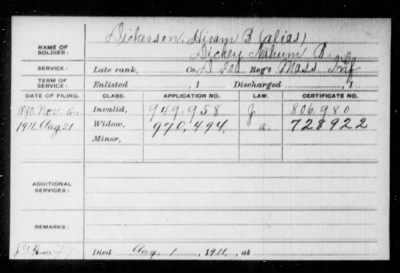 Dickerson, Hiram B (alias)
NAME OF SOLDIER: Dickey Nahum B.
SERVICE: Late rank, Co. Reg't Mass Inf
TERM OF SERVICE: Enlisted , 1 Discharged , 1
DATE OF FILING. CLASS. APPLICATION NO. LAW. CERTIFICATE NO.
1890 Nov. Invalid, 949,958 J 806,980
1911 Aug 21 Widow, 970,494 a. 728922
Minor,
ADDITIONAL SERVICES:
REMARKS:
Died Aug 1, 1911, at